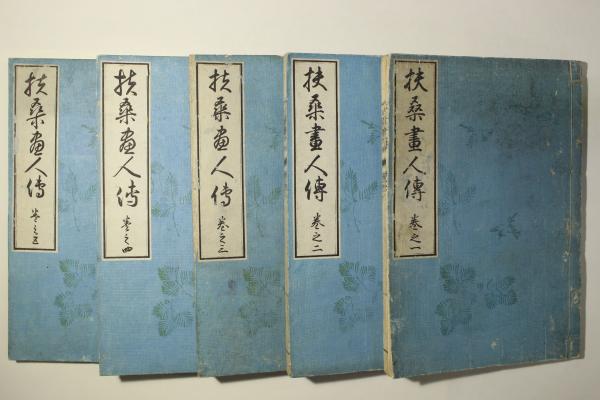 扶桑畫人傳 巻之一
扶桑畫人傳 巻之二
扶桑画人傳 巻之三
扶桑畫人傳 巻之四
扶桑畫人傳 巻之五